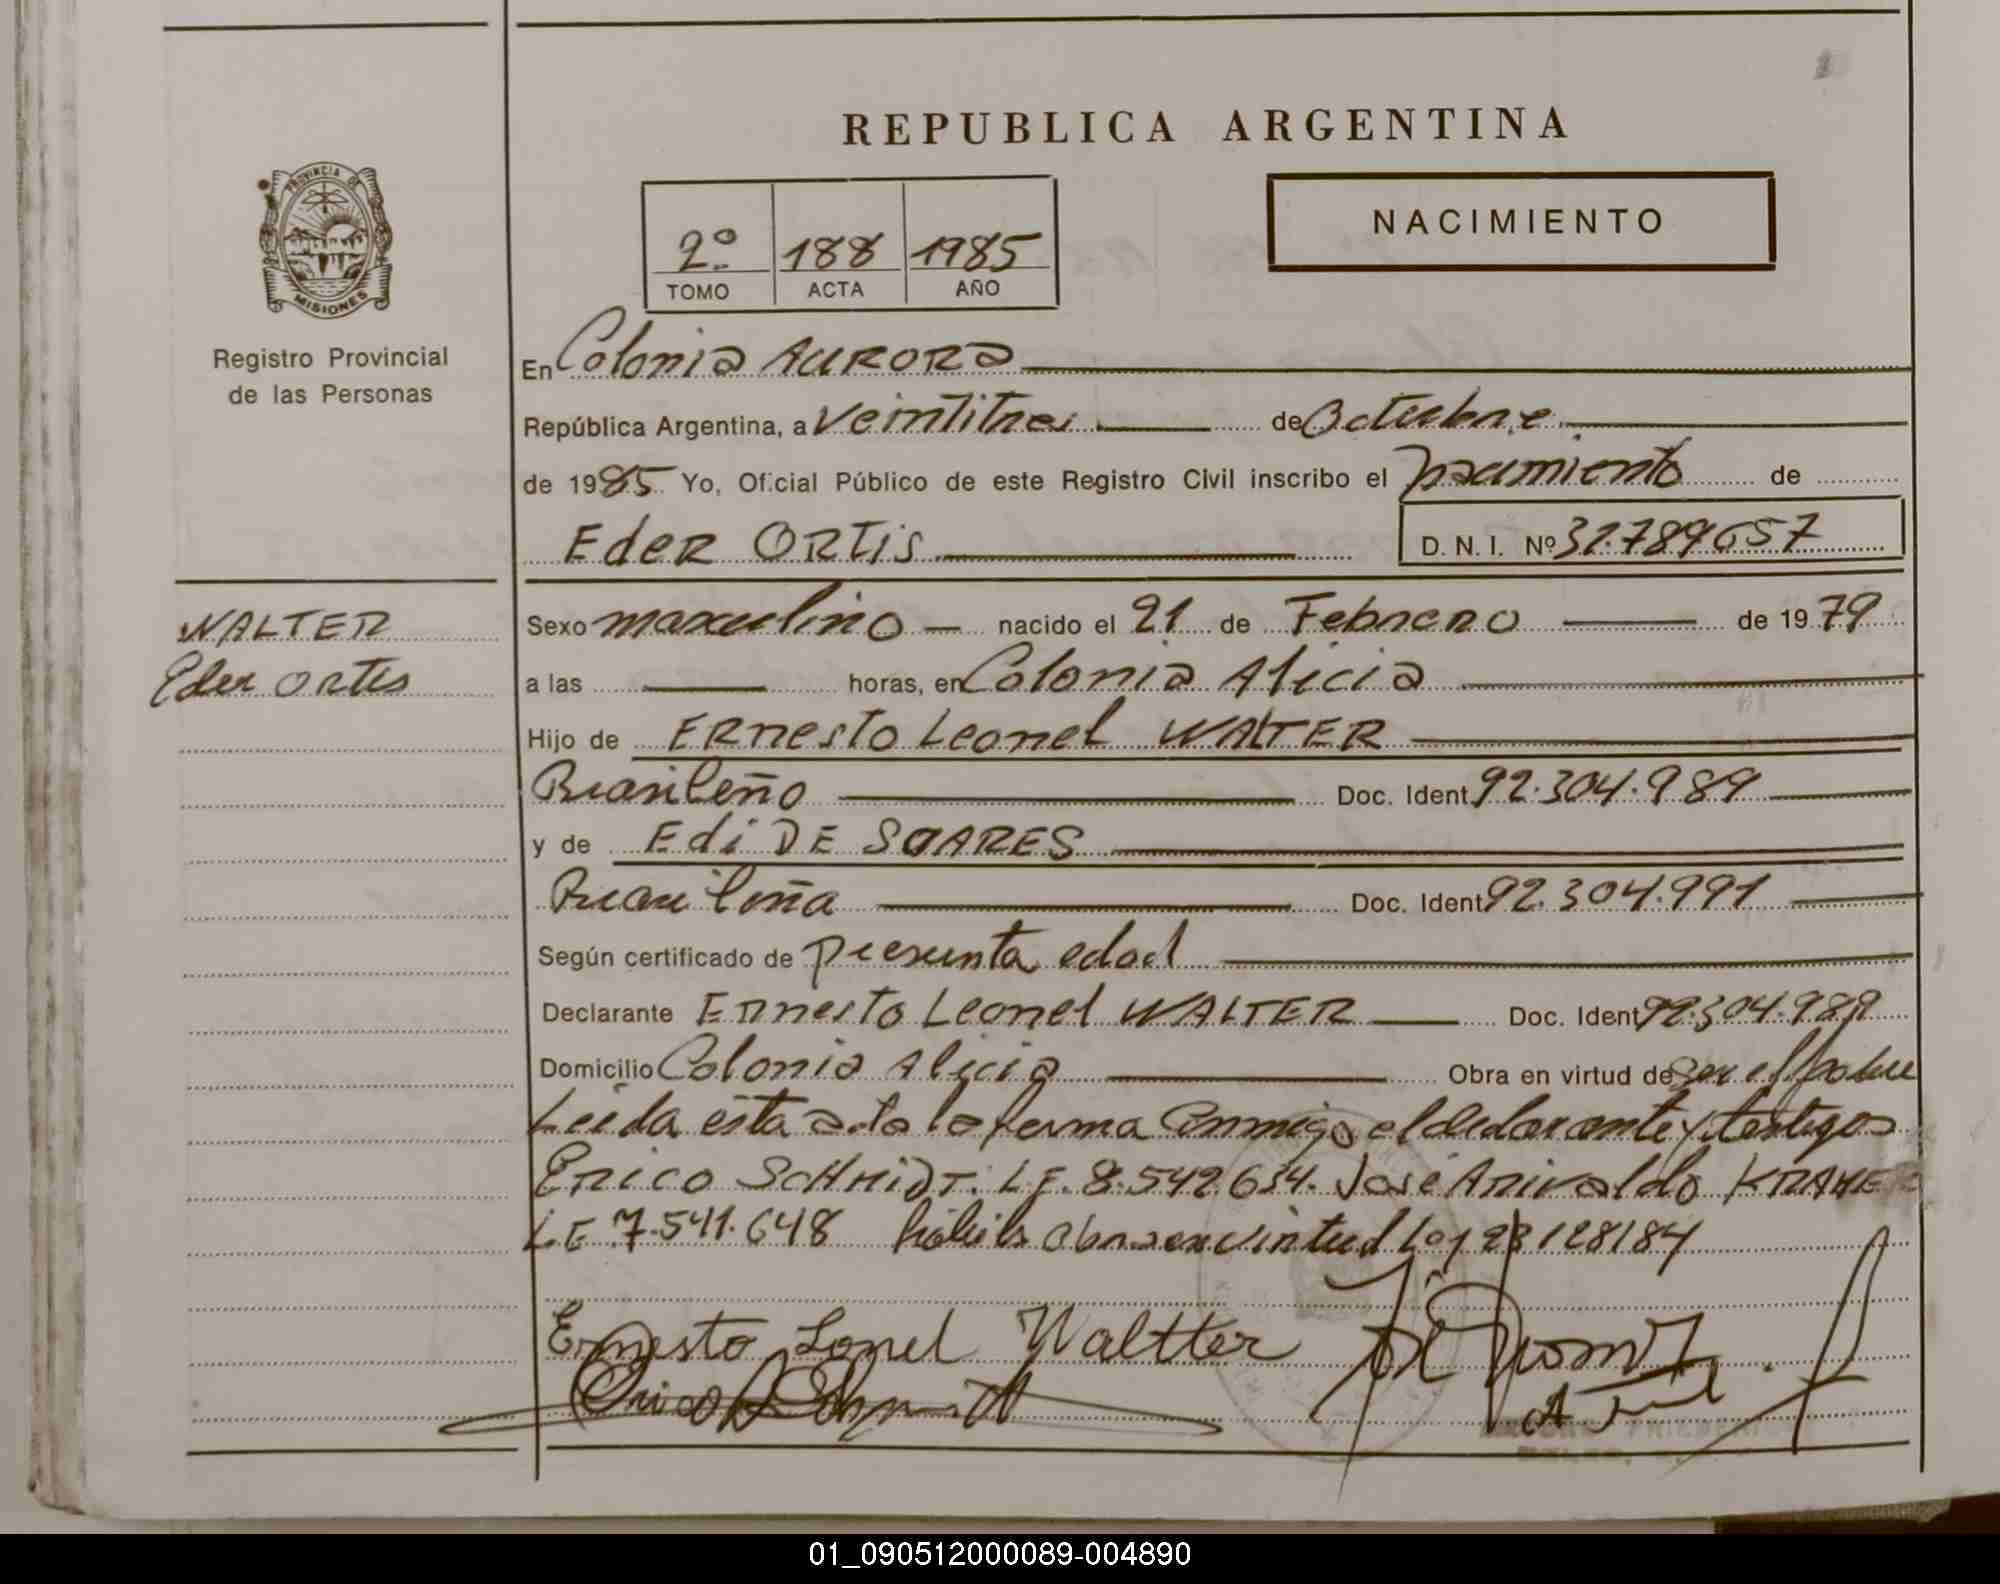 REPUBLICA ARGENTINA
PROVINCIA DE MISIONES
Registro Provincial
de las Personas
2º 188 1985
TOMO ACTA AÑO
NACIMIENTO
En Colonia AURORA
República Argentina, a veintitres de Octubre
de 1985 Yo, Oficial Público de este Registro Civil inscribo el nacimiento de
Eder ORTIS D. N. I. Nº
WALTER
Eder ortis
Sexo masculino nacido el 21 de Febrero de 1979
a las horas, en Colonia Alicia
Hijo de Ernesto Leonel WALTER
Brasileño Doc. Ident 92.304.989
y de Edi DE SOARES
Brasileña Doc. Ident 92.304.991
Según certificado de presunta edad
Declarante Ernesto Leonel WALTER Doc. Ident 92.304.989
Domicilio Colonia Alicia Obra en virtud de ser el padre
Leida esta acta la firma conmigo el declarante y testigos
Erico SCHMIDT. L.E. 8.542.634. José Arivaldo KRAMER
L.E 7.541.648 hábiles obra en virtud Ley 23128/84
Ernesto Lonel Waltter
Erico Schmidt
01_090512000089-004890